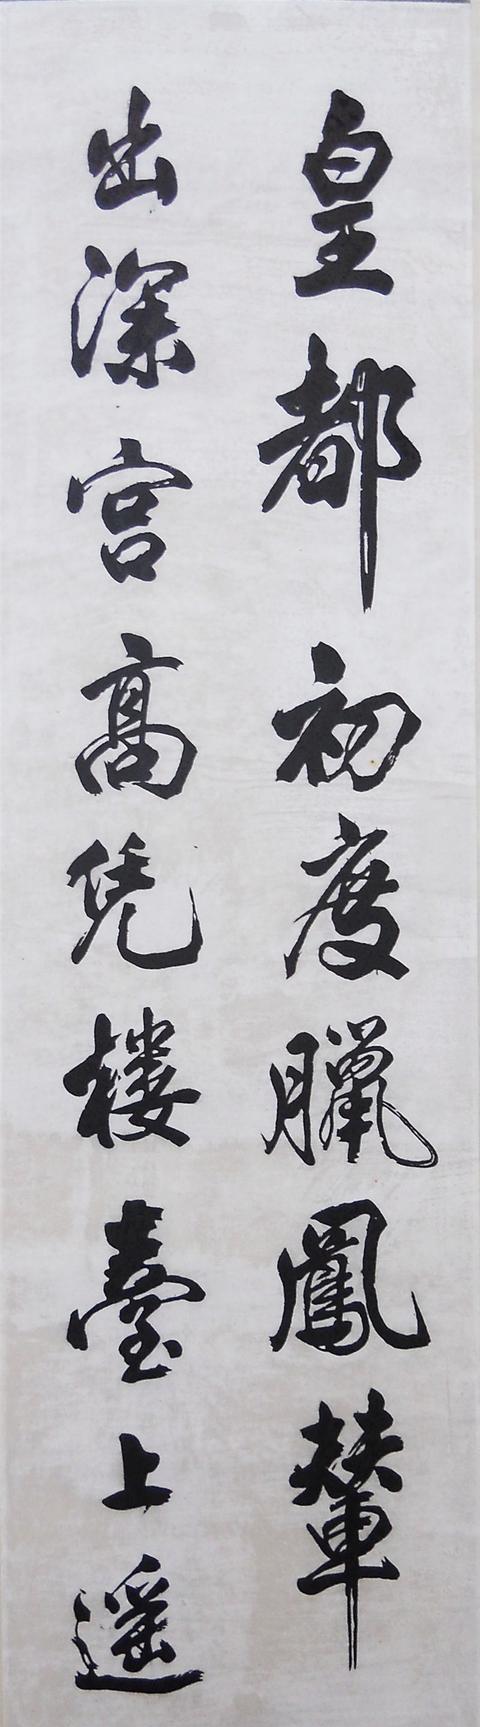 皇都初度臘鳳輦
出深宫高凭樓臺上遥